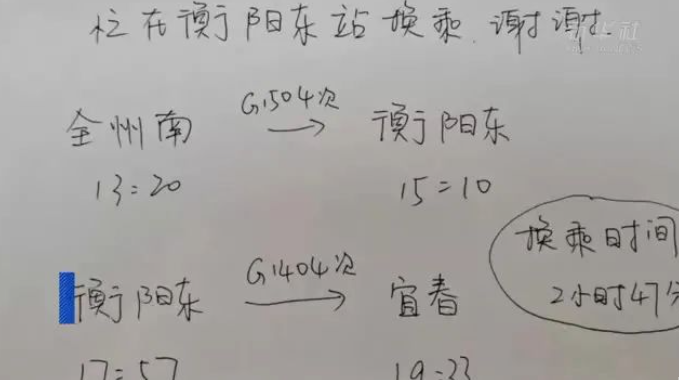 在衡阳东站换乘.谢谢
全州南 G1504次 → 衡阳东
13:20 15:10
衡阳东 G1404次 → 宜春
换乘时间
2小时47分
17:57 19:33
新华社